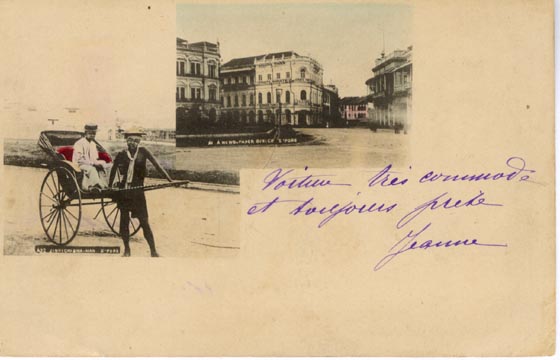 A NEWSPAPER OFFICE S'PORE
Voiture très commode
et toujours prête
Jeanne
JINRICKSHA-MAN S'PORE